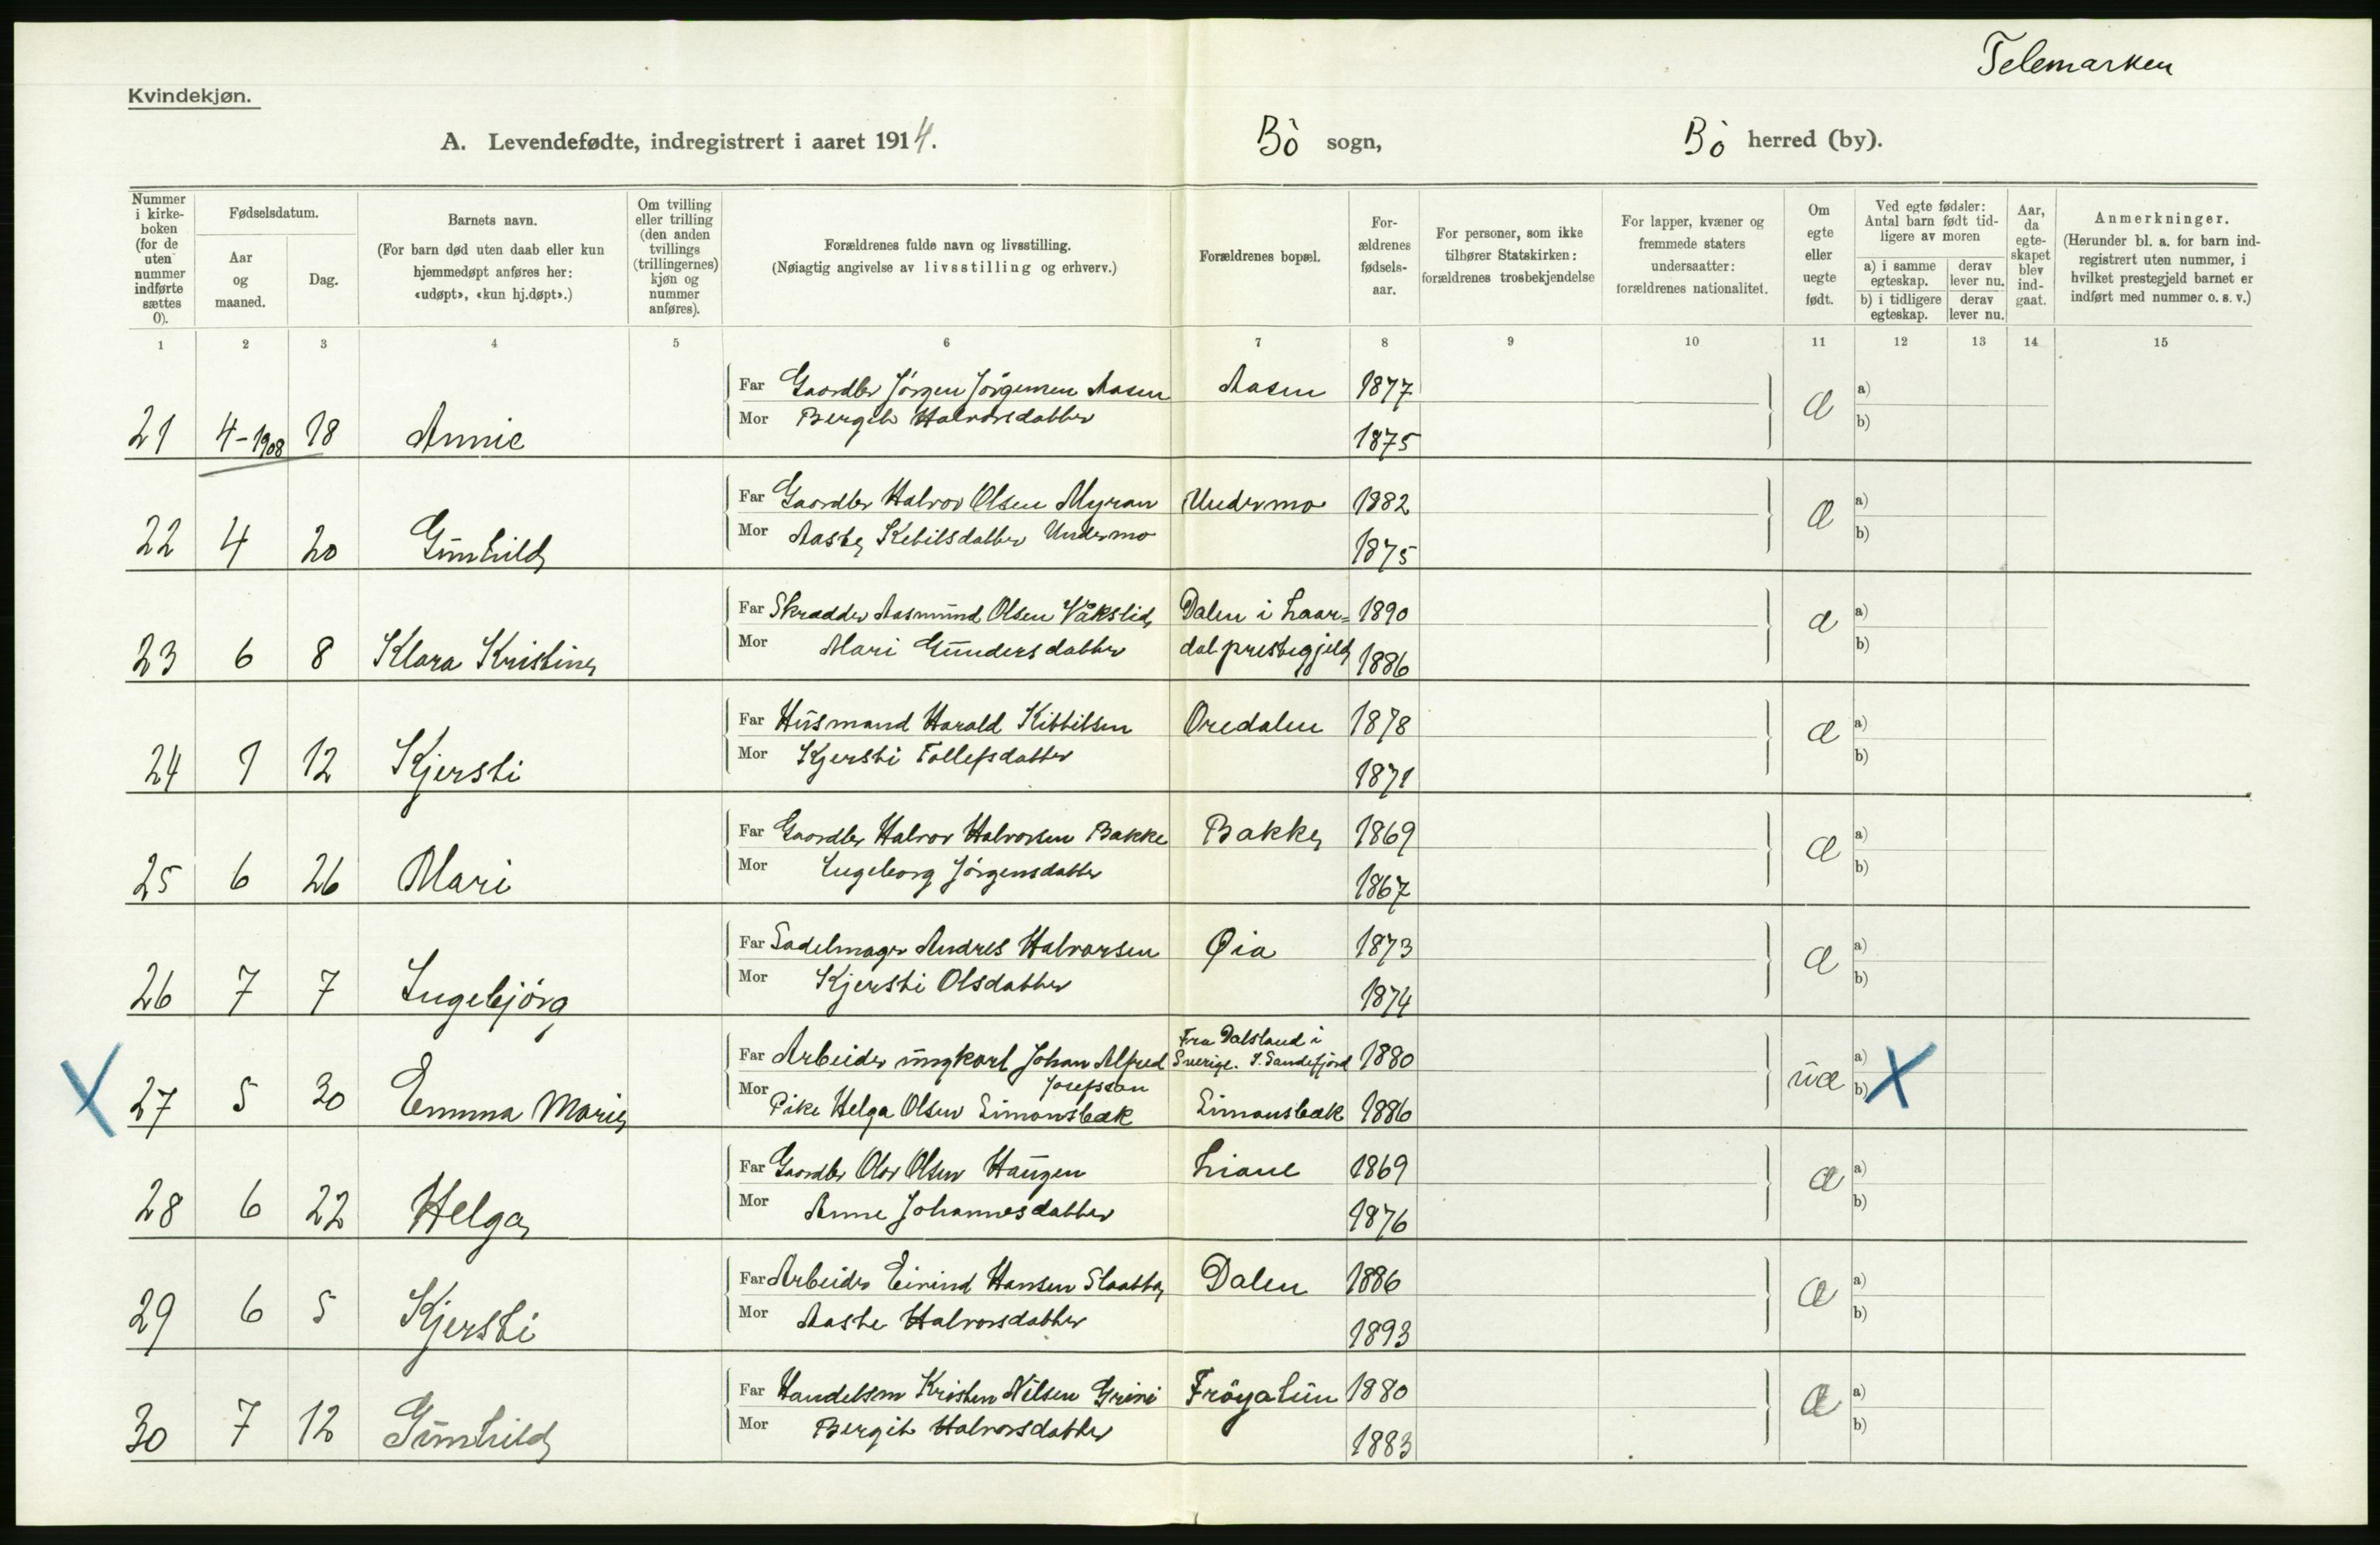 Telemarken
Kvindekjøn.
A. Levendefødte, indregistrert i aaret 1914. Bö sogn, Bö herred (by).
Nummer i kirke-boken (for de uten nummer indførte sættes 0).
Fødselsdatum.
Aar og maaned.
Dag.
Barnets navn.
(For barn død uten daab eller kun hjemmedøpt anføres her: «udøpt», «kun hj.døpt».)
Om tvilling eller trilling (den anden tvillings (trillingernes) kjøn og nummer anføres).
Forældrenes fulde navn og livsstilling.
(Nøiagtig angivelse av livsstilling og erhverv.)
Forældrenes bopæl.
For-ældrenes fødsels-aar.
For personer, som ikke tilhører Statskirken: forældrenes trosbekjendelse
For lapper, kvæner og fremmede staters undersaatter: forældrenes nationalitet.
Om egte eller uegte født.
Ved egte fødsler: Antal barn født tid-ligere av moren
a) i samme egteskap.
derav lever nu.
b) i tidligere egteskap.
derav lever nu.
Aar, da egte-skapet blev ind-gaat.
Anmerkninger.
(Herunder bl. a. for barn ind-registrert uten nummer, i hvilket prestegjeld barnet er indført med nummer o. s. v.)
1 2 3 4 5 6 7 8 9 10 11 12 13 14 15
Far Gaardbr Jörgen Jörgensen Aasen Aasen 1877 a)
21 4-1908 18 Annie Mor Bergit Halvorsdatter 1875 æ b)
Far Gaardbr Halvor Olsen Myran Undermo 1882 a)
22 4 20 Gunhild Mor Aaste Ketilsdatter Undermo 1875 æ b)
Far Skrædder Aasmund Olsen Våkslid Dalen i Laar= 1890 a)
23 6 8 Klara Kristine Mor Mari Gundersdatter dal prestegjeld 1886 æ b)
Far Husmand Harald Kittilsen Oredalen 1878 a)
24 7 12 Kjersti Mor Kjersti Tollefsdatter 1871 æ b)
Far Gaardbr Halvor Halvorsen Bakke Bakke 1869 a)
25 6 26 Mari Mor Ingeborg Jörgensdatter 1867 æ b)
Far Sadelmager Andres Halvorsen Øia 1873 a)
26 7 7 Ingebjörg Mor Kjersti Olsdatter 1874 æ b)
Far Arbeider ungkarl Johan Alfred Josefsson Fra Dalsland i Sverige. I. Sandefjord 1880 a)
X 27 5 30 Emma Marie Mor Pike Helga Olsen Simonsbæk Simonsbæk 1886 uæ b) X
Far Gaardbr Olav Olsen Haugen Liane 1869 a)
28 6 22 Helga Mor Anne Johannesdatter 1876 æ b)
Far Arbeider Eivind Hansen Slaatta Dalen 1886 a)
29 6 5 Kjersti Mor Aaste Halvorsdatter 1893 æ b)
Far Handelsm Kristen Nilsen Grini Fröyatun 1880 a)
30 7 12 Gunhild Mor Bergit Halvorsdatter 1883 æ b)